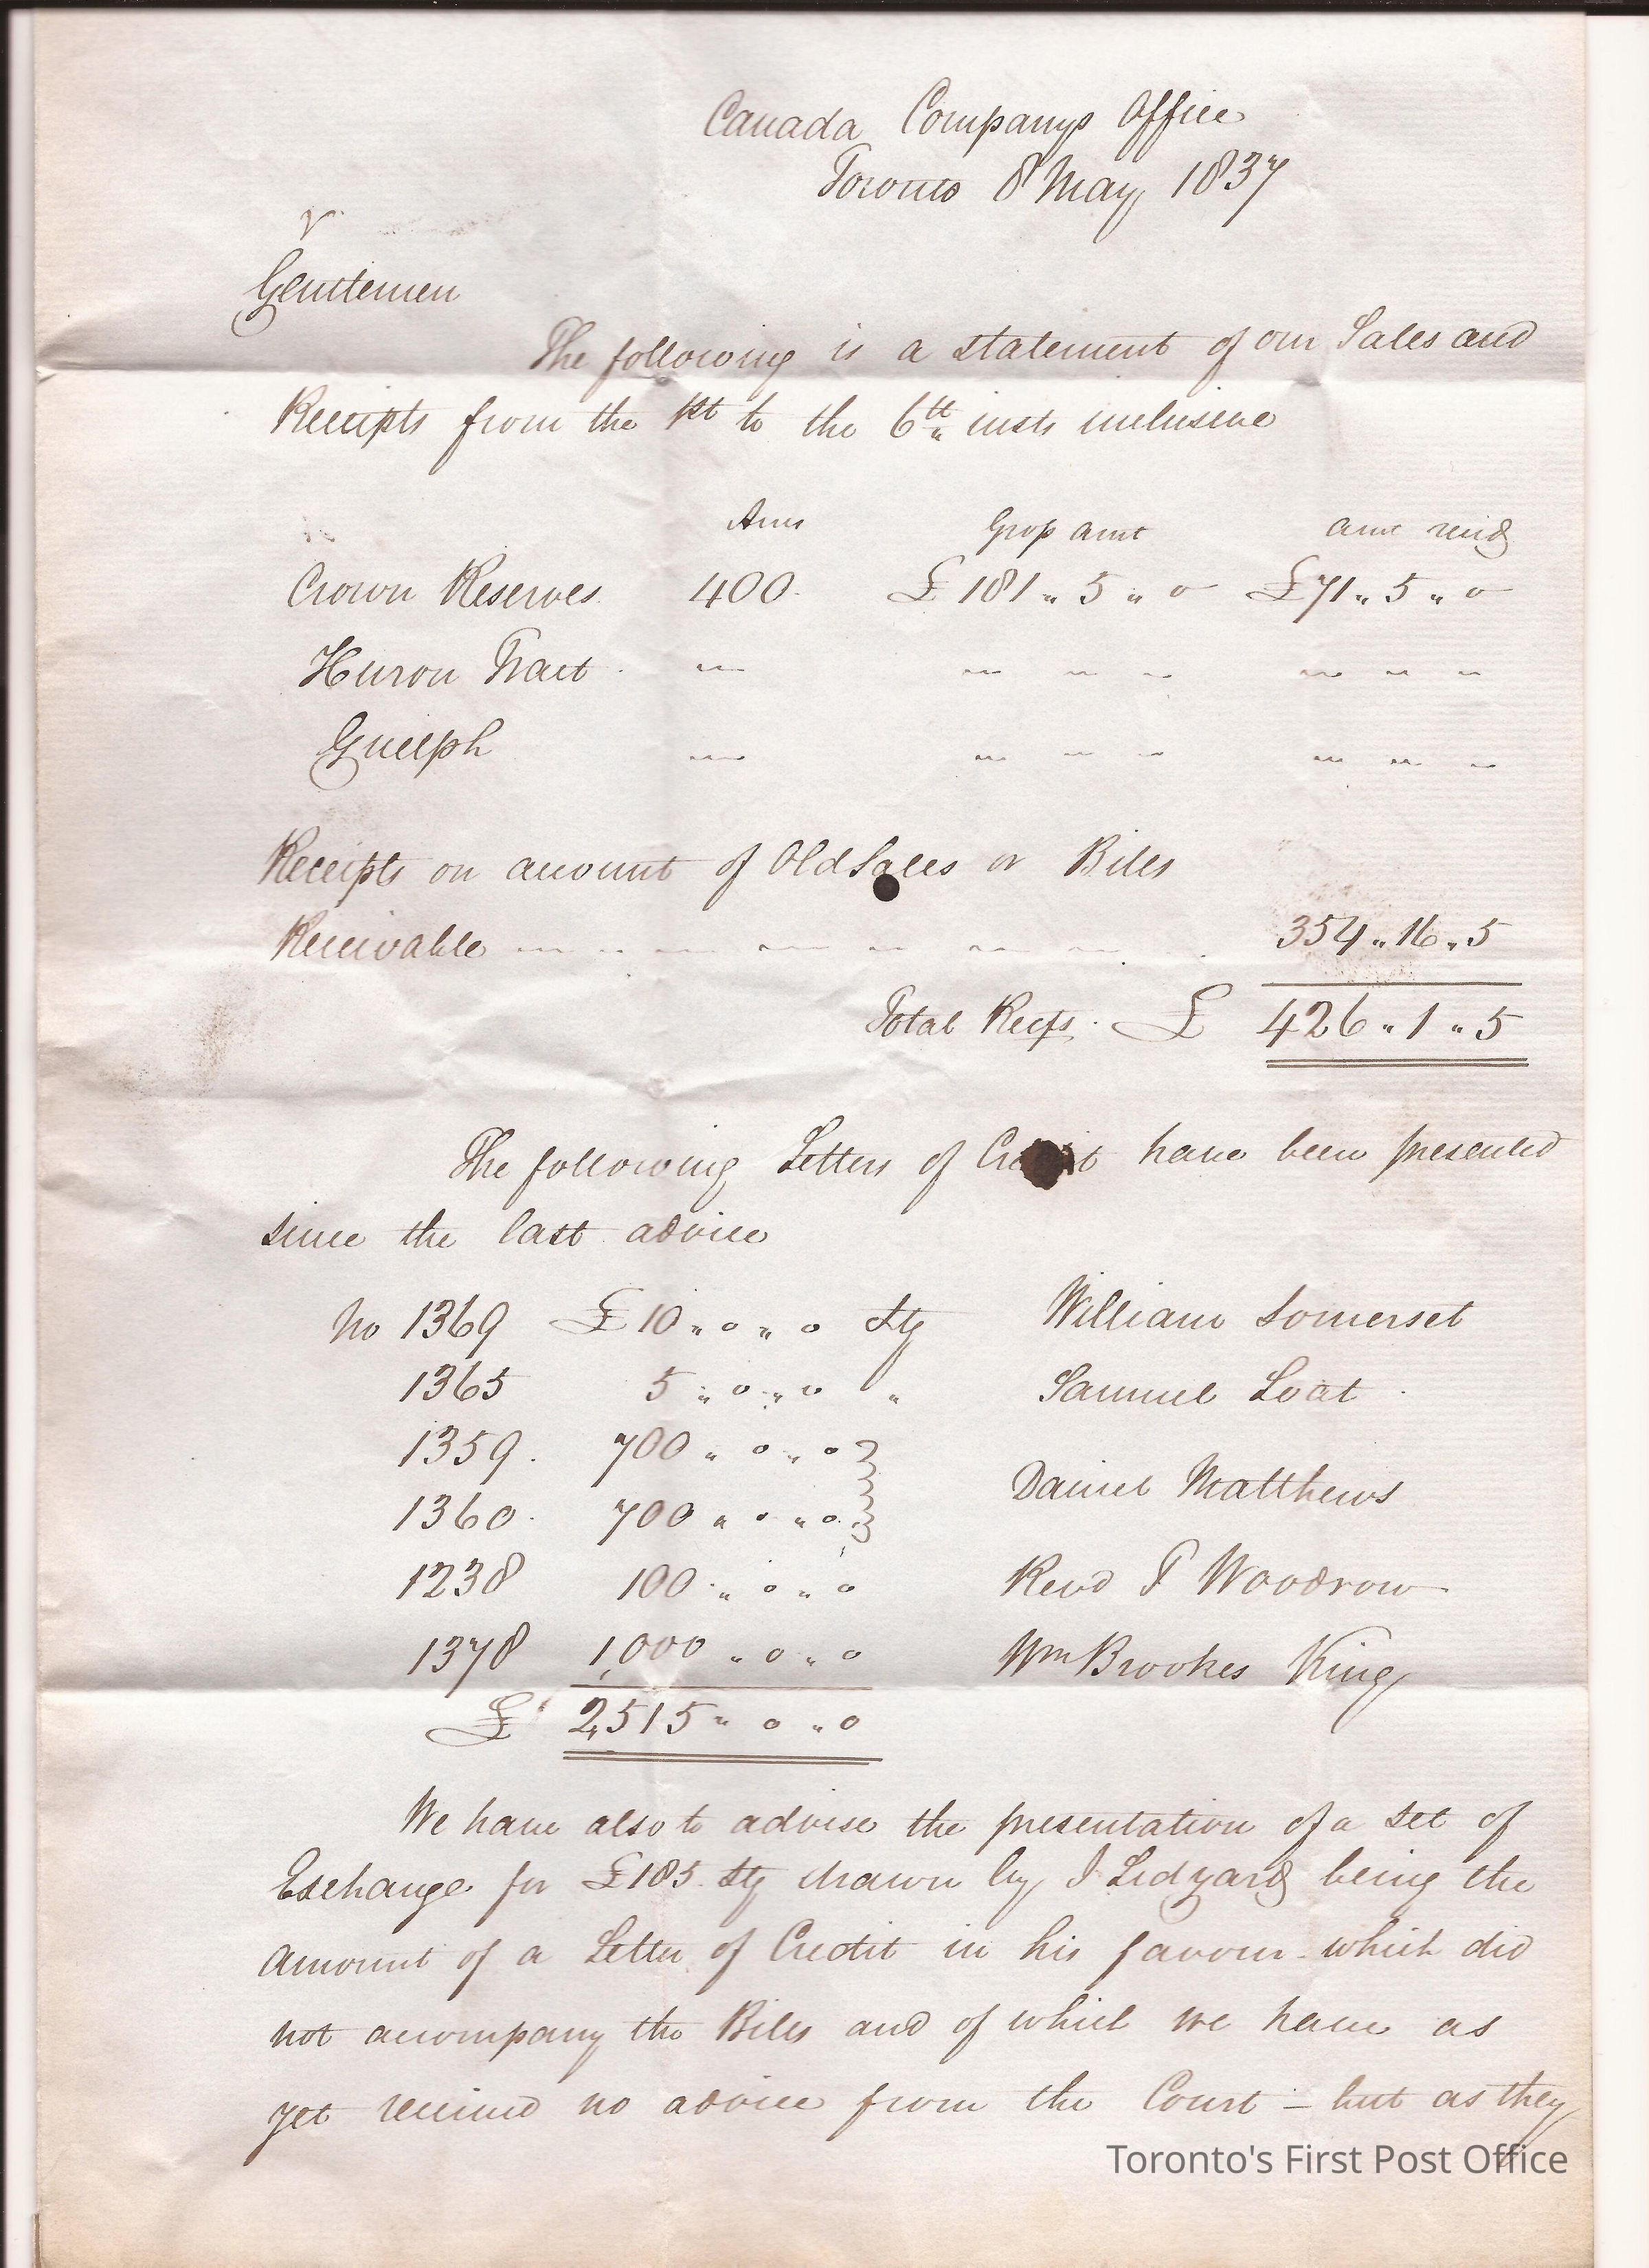 Canada Companys Office
Toronto 8 May 1837
Gentlemen
The following is a statement of our Sales and
Receipts from the 1st to the 6th insts inclusive
Acres Gross amt amt recd
Crown Reserves 400 £181 " 5 " 0 £71 " 5 " 0
Huron Tract " " " " " " "
Guelph " " " " " " "
Receipts on account of Old Sales or Bills
Receivable 354 " 16 " 5
Total Recps. £ 426 " 1 " 5
The following Letters of Credit have been presented
since the last advice
No 1369 £10 " 0 " 0 Stg William Somerset
1365 5 " 0 " 0 " Samuel Loat
1359 700 " 0 " 0
Daniel Matthews
1360 700 " 0 " 0
1238 100 " 0 " 0 Revd T Woodrow
1378 1,000 " 0 " 0 Wm Brookes King
£ 2,515 " 0 " 0
We have also to advise the presentation of a set of
Exchange for £185 Stg drawn by I Ledyard being the
amount of a Letter of Credit in his favour which did
not accompany the Bills and of which we have as
yet received no advice from the Court – but as they
Toronto's First Post Office